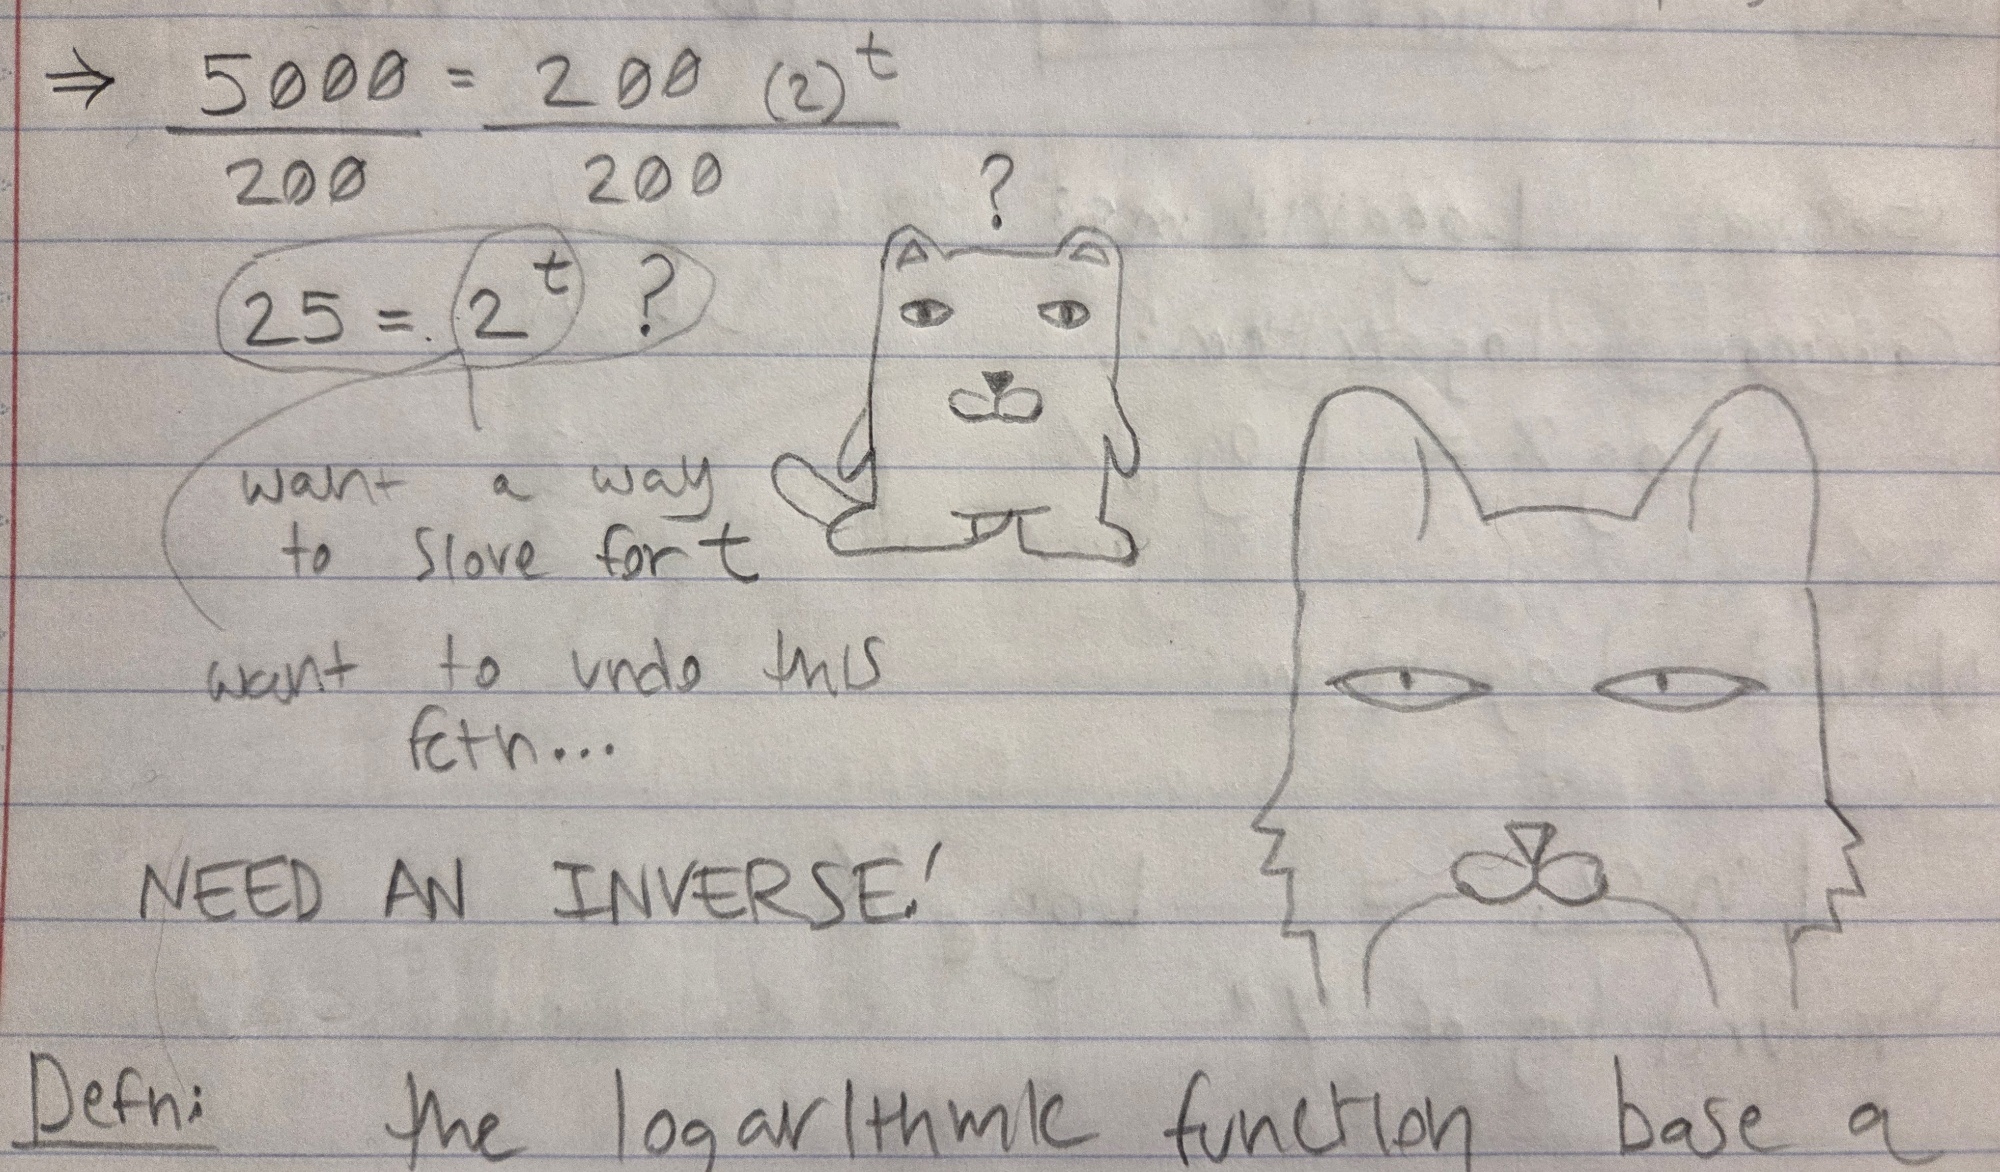 ⇒ 5000 = 200 (2)^t
200 200
?
25 = 2^t ?
want a way
to slove for t
want to undo this
fctn...
NEED AN INVERSE!
Defn: the logarithmic function base a